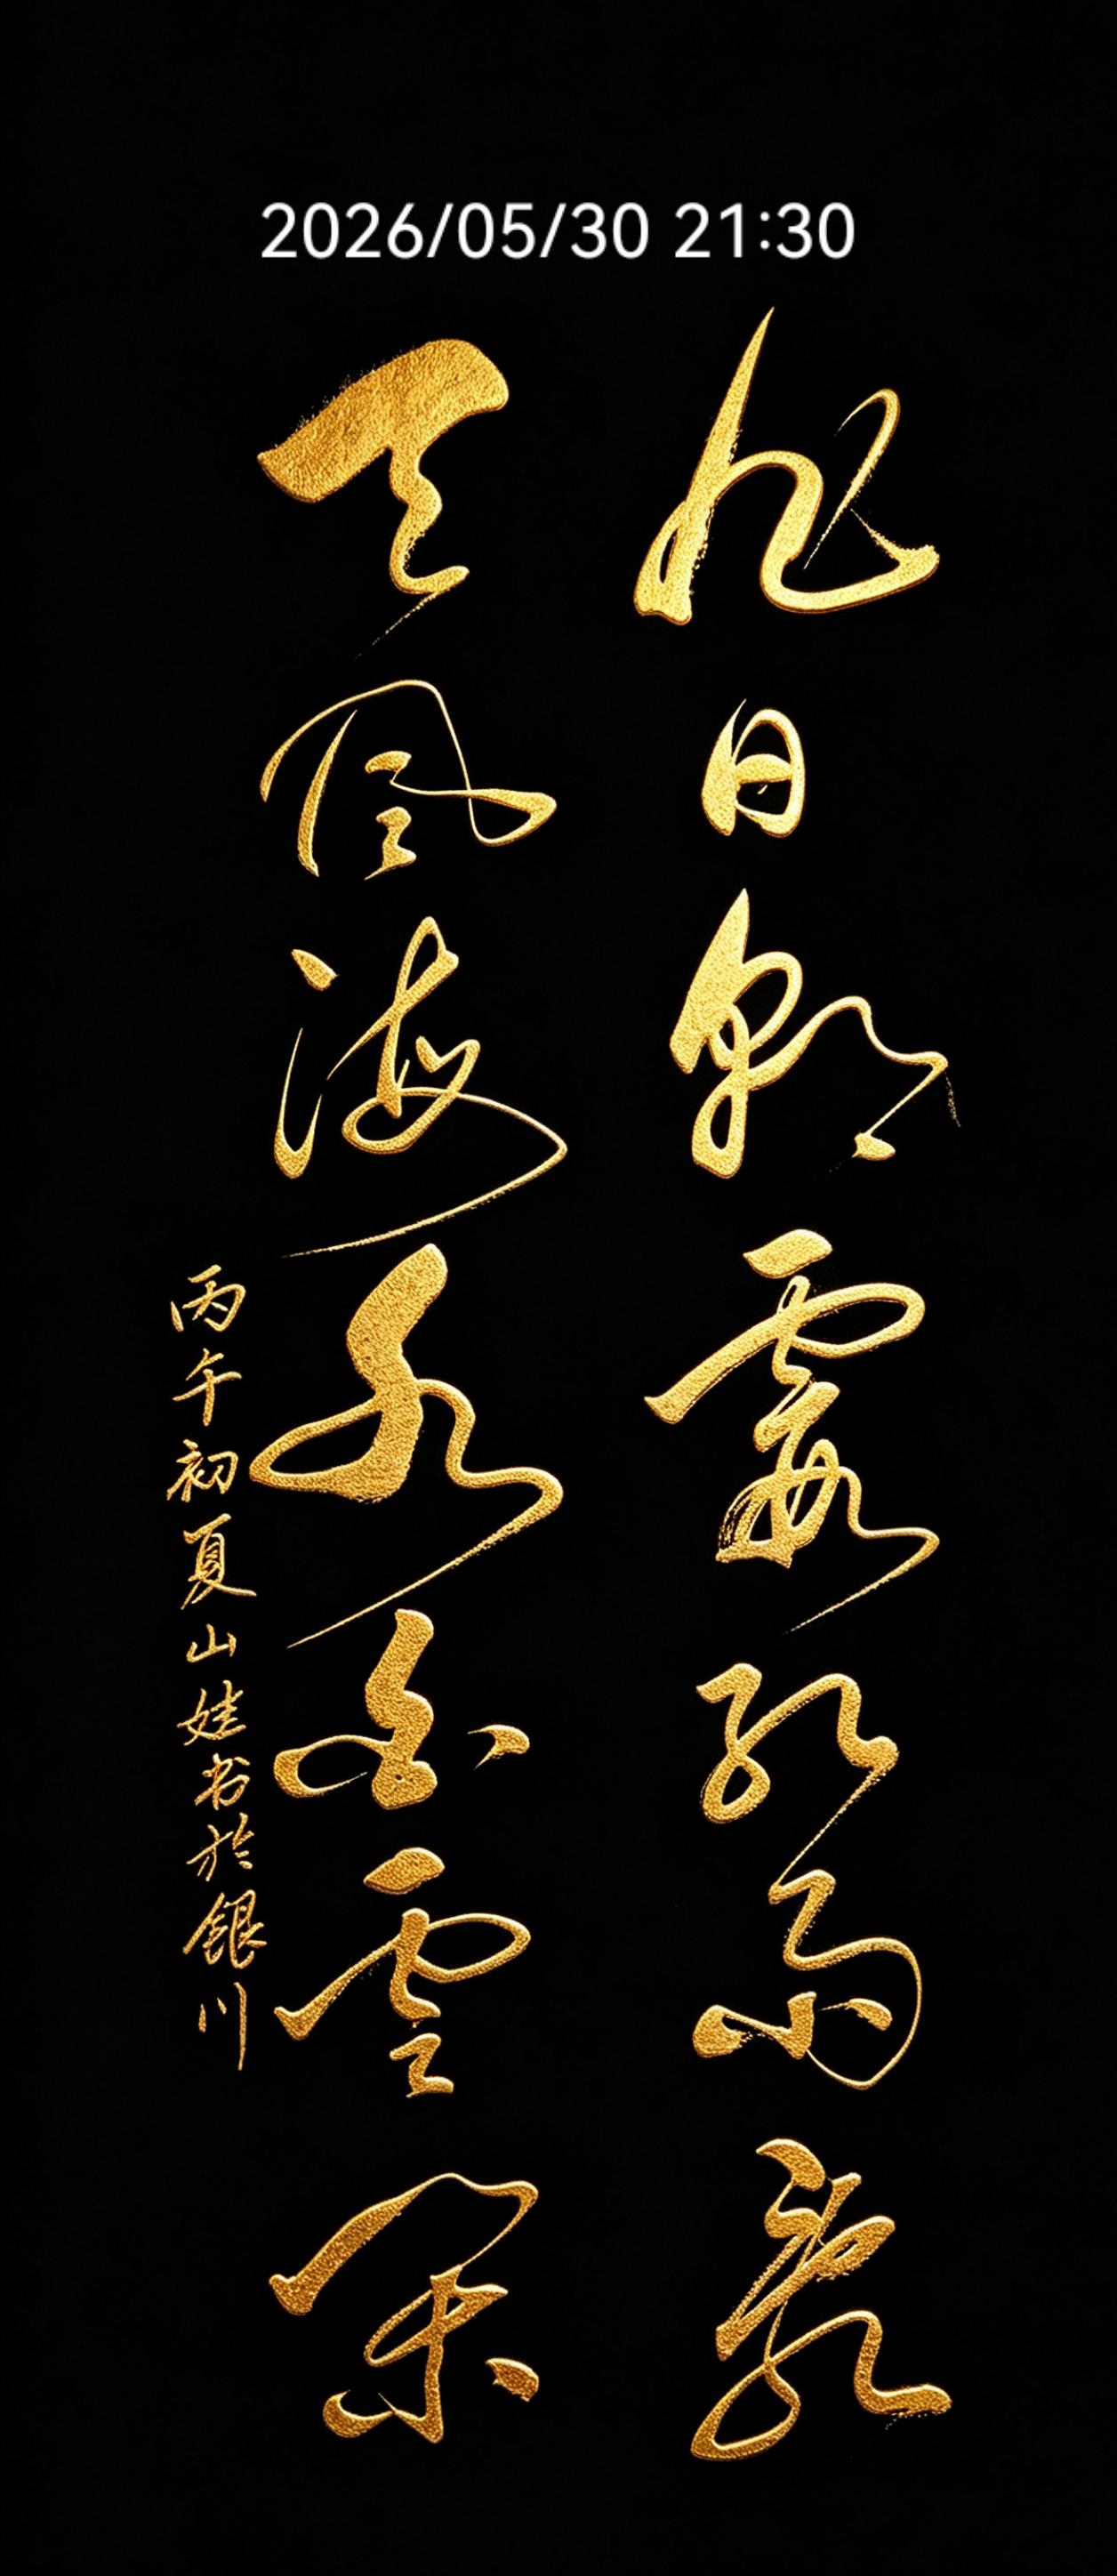 2026/05/30 21:30
旭日朝霞紅雨亂
天風海水雲閑
丙午初夏山娃书於銀川